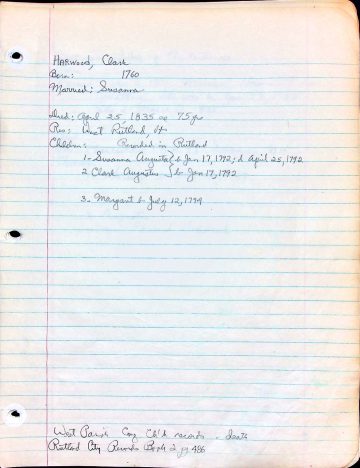 Harwood, Clark
Born: 1760
Married: Susanna
Died: April 25 1835 ae 75 y
Res: West Rutland, Vt
Children: Recorded in Rutland
1- Susanna Augusta } b Jan 17, 1792; d April 25, 1792
2 Clark Augustus } b Jan 17, 1792
3- Margaret b July 12, 1794
West Parish Cong Ch'h records - death
Rutland City Records Book 2 pg 486